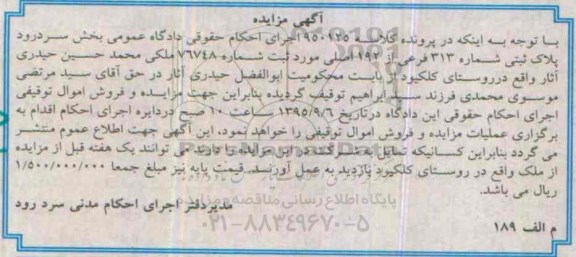 آگهی مزایده
با توجه به اینکه در پرونده کلاسه ۹۵۰۱۲۵ اجرای احکام حقوقی دادگاه عمومی بخش سردرود
پلاک ثبتی شماره ۳۱۳ فرعی از ۱۹۲ اصلی مورد ثبت شماره ۷۶۷۴۸ ملکی محمد حسین حیدری
آثار واقع درروستای کلکبود از بابت محکومیت ابوالفضل حیدری آثار در حق آقای سید مرتضی
موسوی محمدی فرزند سید ابراهیم توقیف گردیده بنابراین جهت مزایده و فروش اموال توقیفی
اجرای احکام حقوقی این دادگاه درتاریخ ۱۳۹۵/۹/۶ ساعت ۱۰ صبح دردایره اجرای احکام اقدام به
برگزاری عملیات مزایده و فروش اموال توقیفی را خواهد نمود، این آگهی جهت اطلاع عموم منتشر
می گردد بنابراین کسانیکه تمایل به شرکت در این مزایده را دارند می توانند یک هفته قبل از مزایده
از ملک واقع در روستای کلکبود بازدید به عمل آورند. قیمت پایه نیز مبلغ جمعا ۱/۵۰۰/۰۰۰/۰۰۰
ریال می باشد.
پایگاه اطلاع رسانی مناقصه و مزایده
مدیردفتر اجرای احکام مدنی سرد رود
۰۲۱-۸۸۳۴۹۶۷۰-۵
م الف ۱۸۹